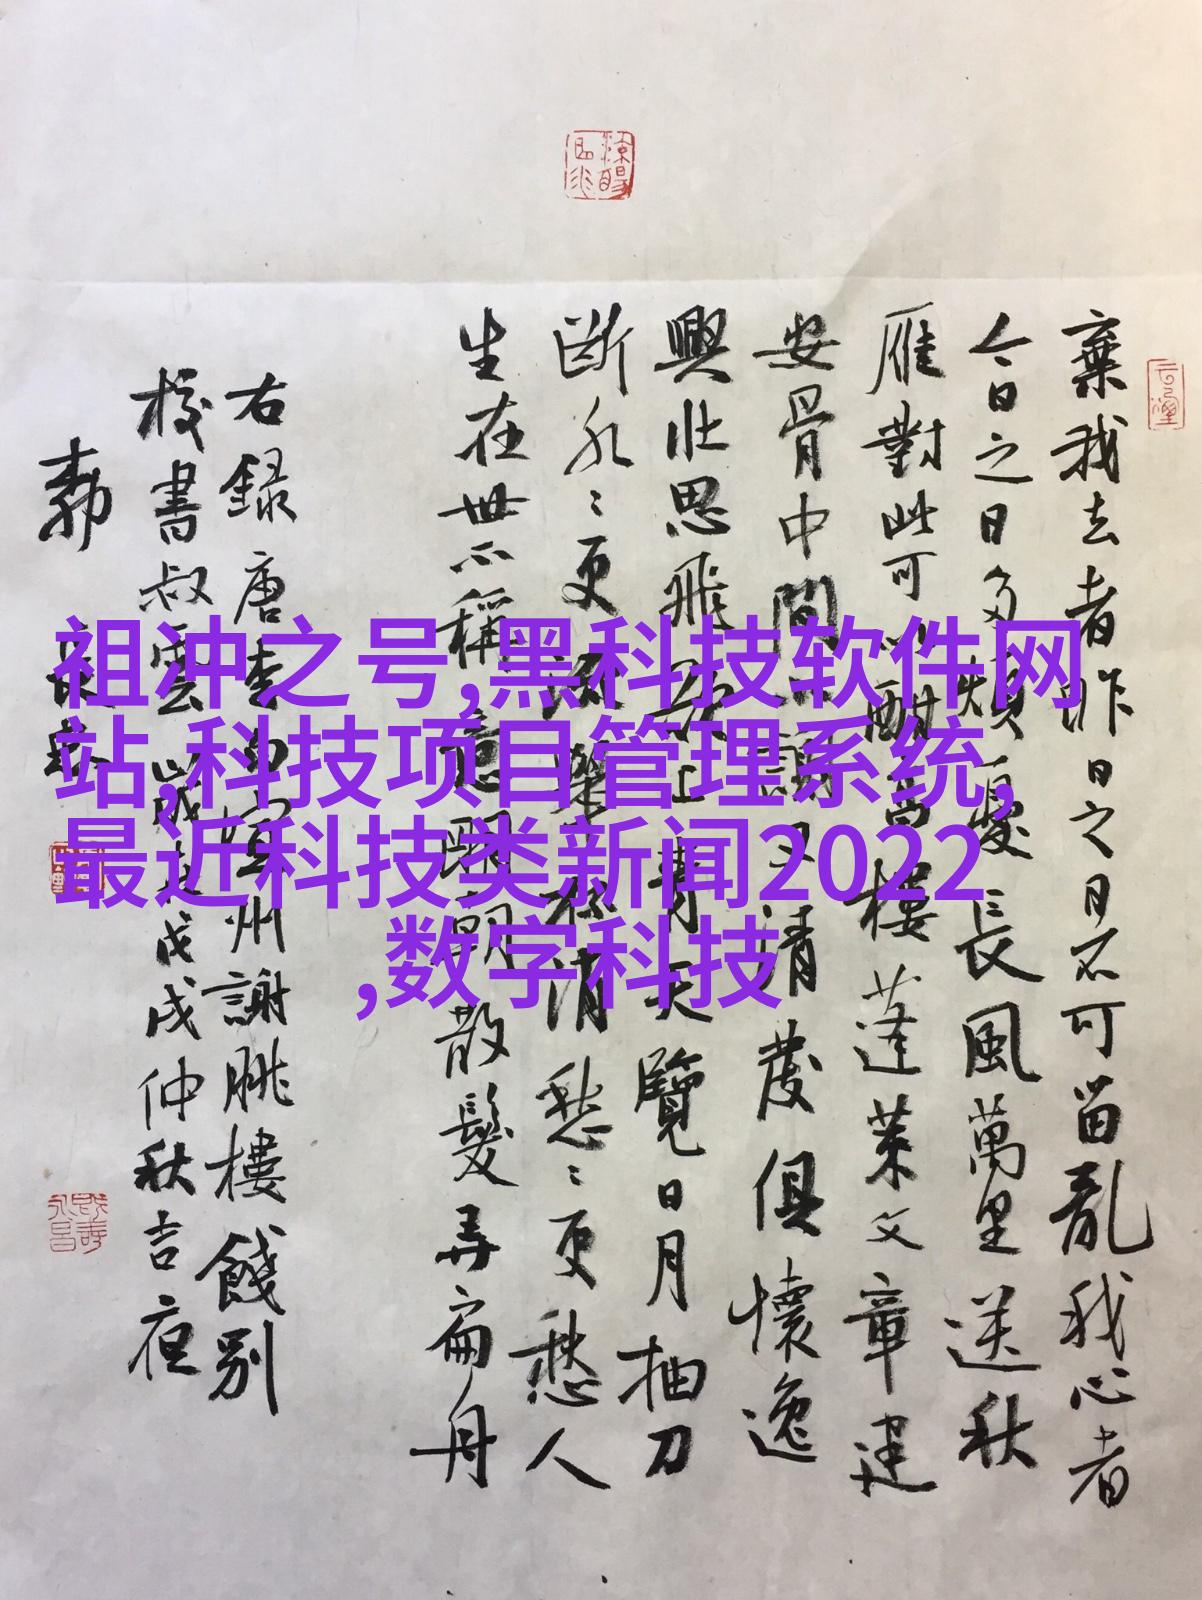 棄我去者昨日之日不可留亂我心者
今日之日多煩憂長風萬里送秋
雁對此可以酣高樓蓬萊文章建
安骨中間小謝又清發俱懷逸
興壯思飛欲上青天覽日月抽刀
斷水〻更流舉杯消愁〻更愁人
生在世不稱意明朝散髮弄扁舟
右錄唐李白宣州謝朓樓餞別
校書叔雲歲在戊戌仲秋吉夜
祖冲之号,黑科技软件网
站,科技项目管理系统,
最近科技类新闻2022
,数字科技